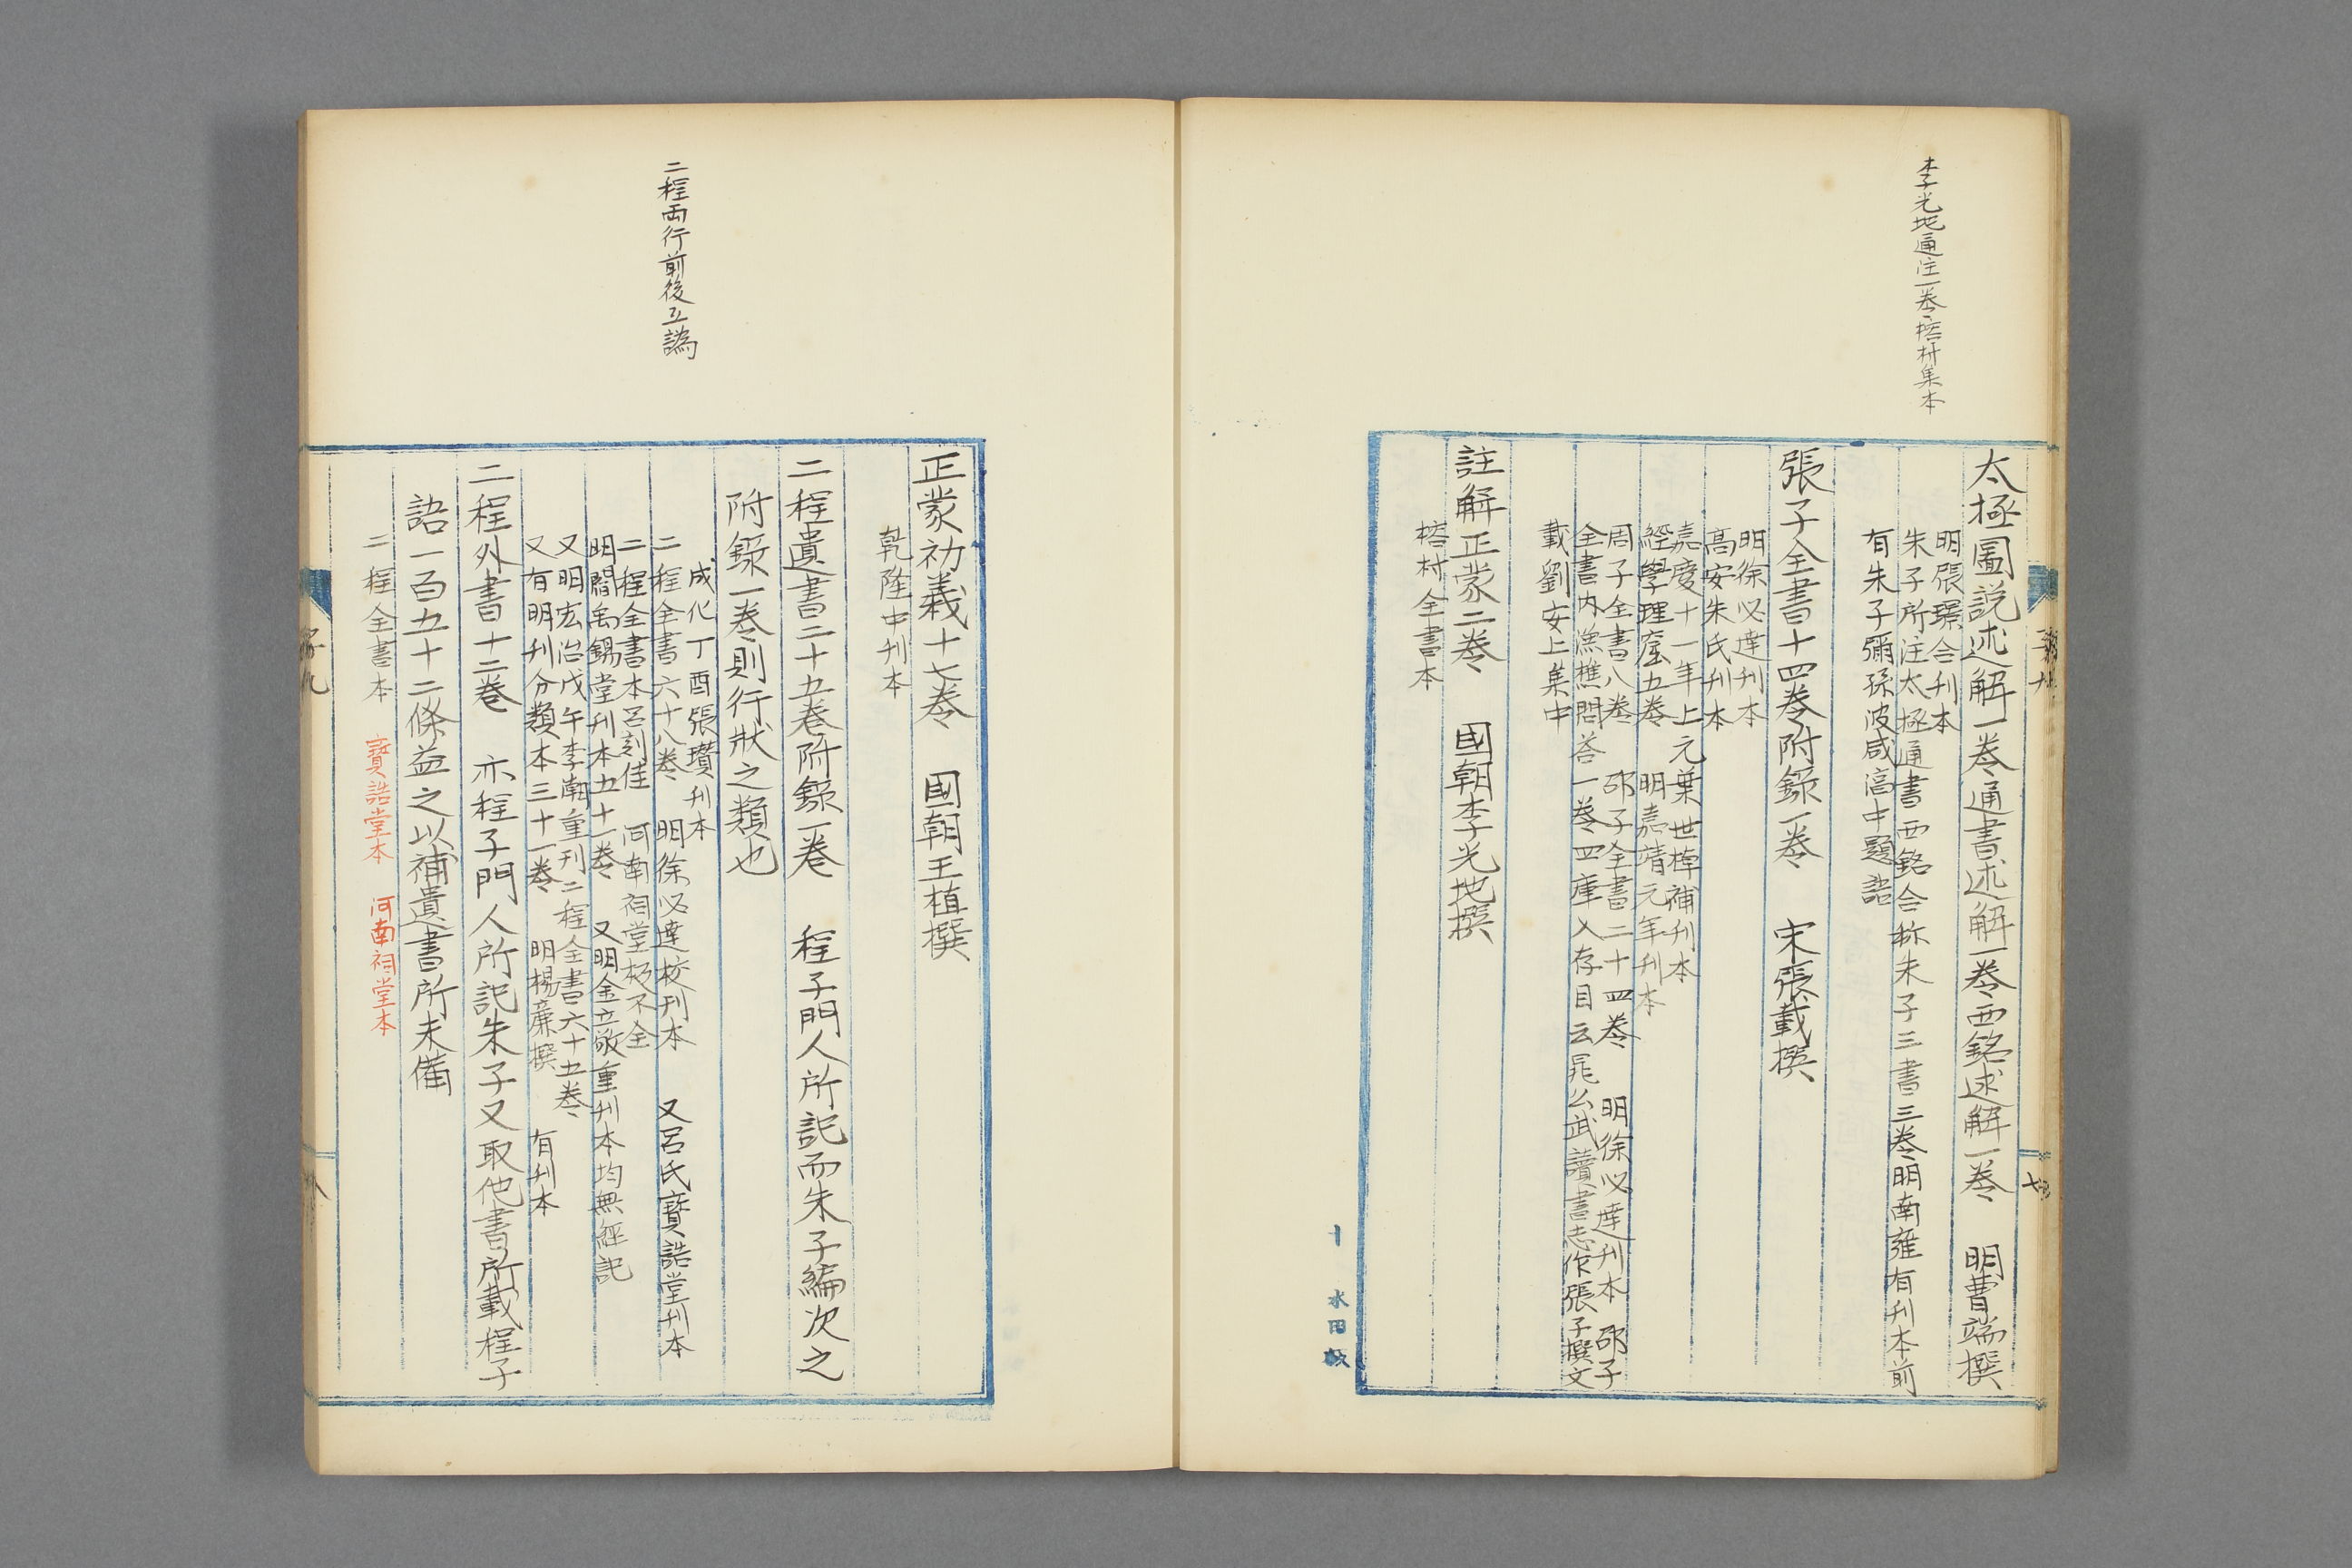 李光地通注一卷榕村集本
太極圖說述解一卷通書述解一卷西銘述解一卷　明曹端撰
明張璟合刊本
朱子所注太極通書西銘合称朱子三書三卷明南雍有刊本前
有朱子彌孫浚咸淳中題語
張子全書十四卷附錄一卷　宋張載撰
明徐必達刊本
高安朱氏刊本
嘉慶十一年上元葉世槔補刊本
經學理窟五卷　明嘉靖元年刊本
周子全書八卷　邵子全書二十四卷　明徐必達刊本　邵子
全書內漁樵問答一卷四庫入存目云晁公武讀書志作張子撰文
載劉安上集中
註解正蒙二卷　國朝李光地撰
榕村全書本
水田
二程兩行前後互譌
正蒙初義十七卷　國朝王植撰
乾隆中刊本
二程遺書二十五卷附錄一卷　程子門人所記而朱子編次之
附錄一卷則行狀之類也
成化丁酉張瓚刊本
二程全書六十八卷　明徐必達校刊本　又呂氏寶誥堂刊本
二程全書本呂刻佳　河南祠堂板不全
明閻禹錫堂刊本五十一卷　又明金立敬重刊本均無經記
又明宏治戊午李瀚重刊二程全書六十五卷
又有明刊分類本三十一卷　明楊廉撰　有刊本
二程外書十二卷　亦程子門人所記朱子又取他書所載程子
語一百五十二條益之以補遺書所未備
二程全書本　寶誥堂本　河南祠堂本